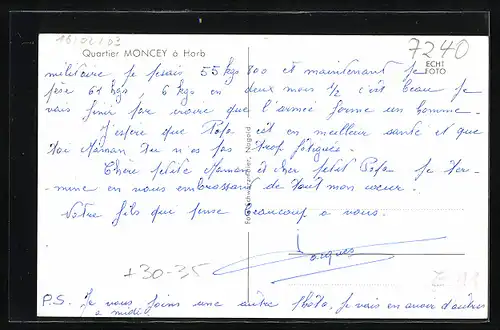 16/02/03
7240
Quartier MONCEY à Horb
ECHT
FOTO
militaire je pesais 55 kgs 800 et maintenant je
pèse 61 kgs, 6 kgs en deux mois 1/2 c'est beau je
vais finir par croire que l'armée forme un homme.
J'espère que Papa est en meilleur santé et que
toi Maman tu n'es pas trop fatiguée.
Chère petite Maman et cher petit Papa je ter-
mine en vous embrassant de tout mon coeur.
Votre fils qui pense beaucoup a vous.
Jacques
+30-35
P.S. Je vous joins une autre photo, je vais en avoir d'autres
a midi